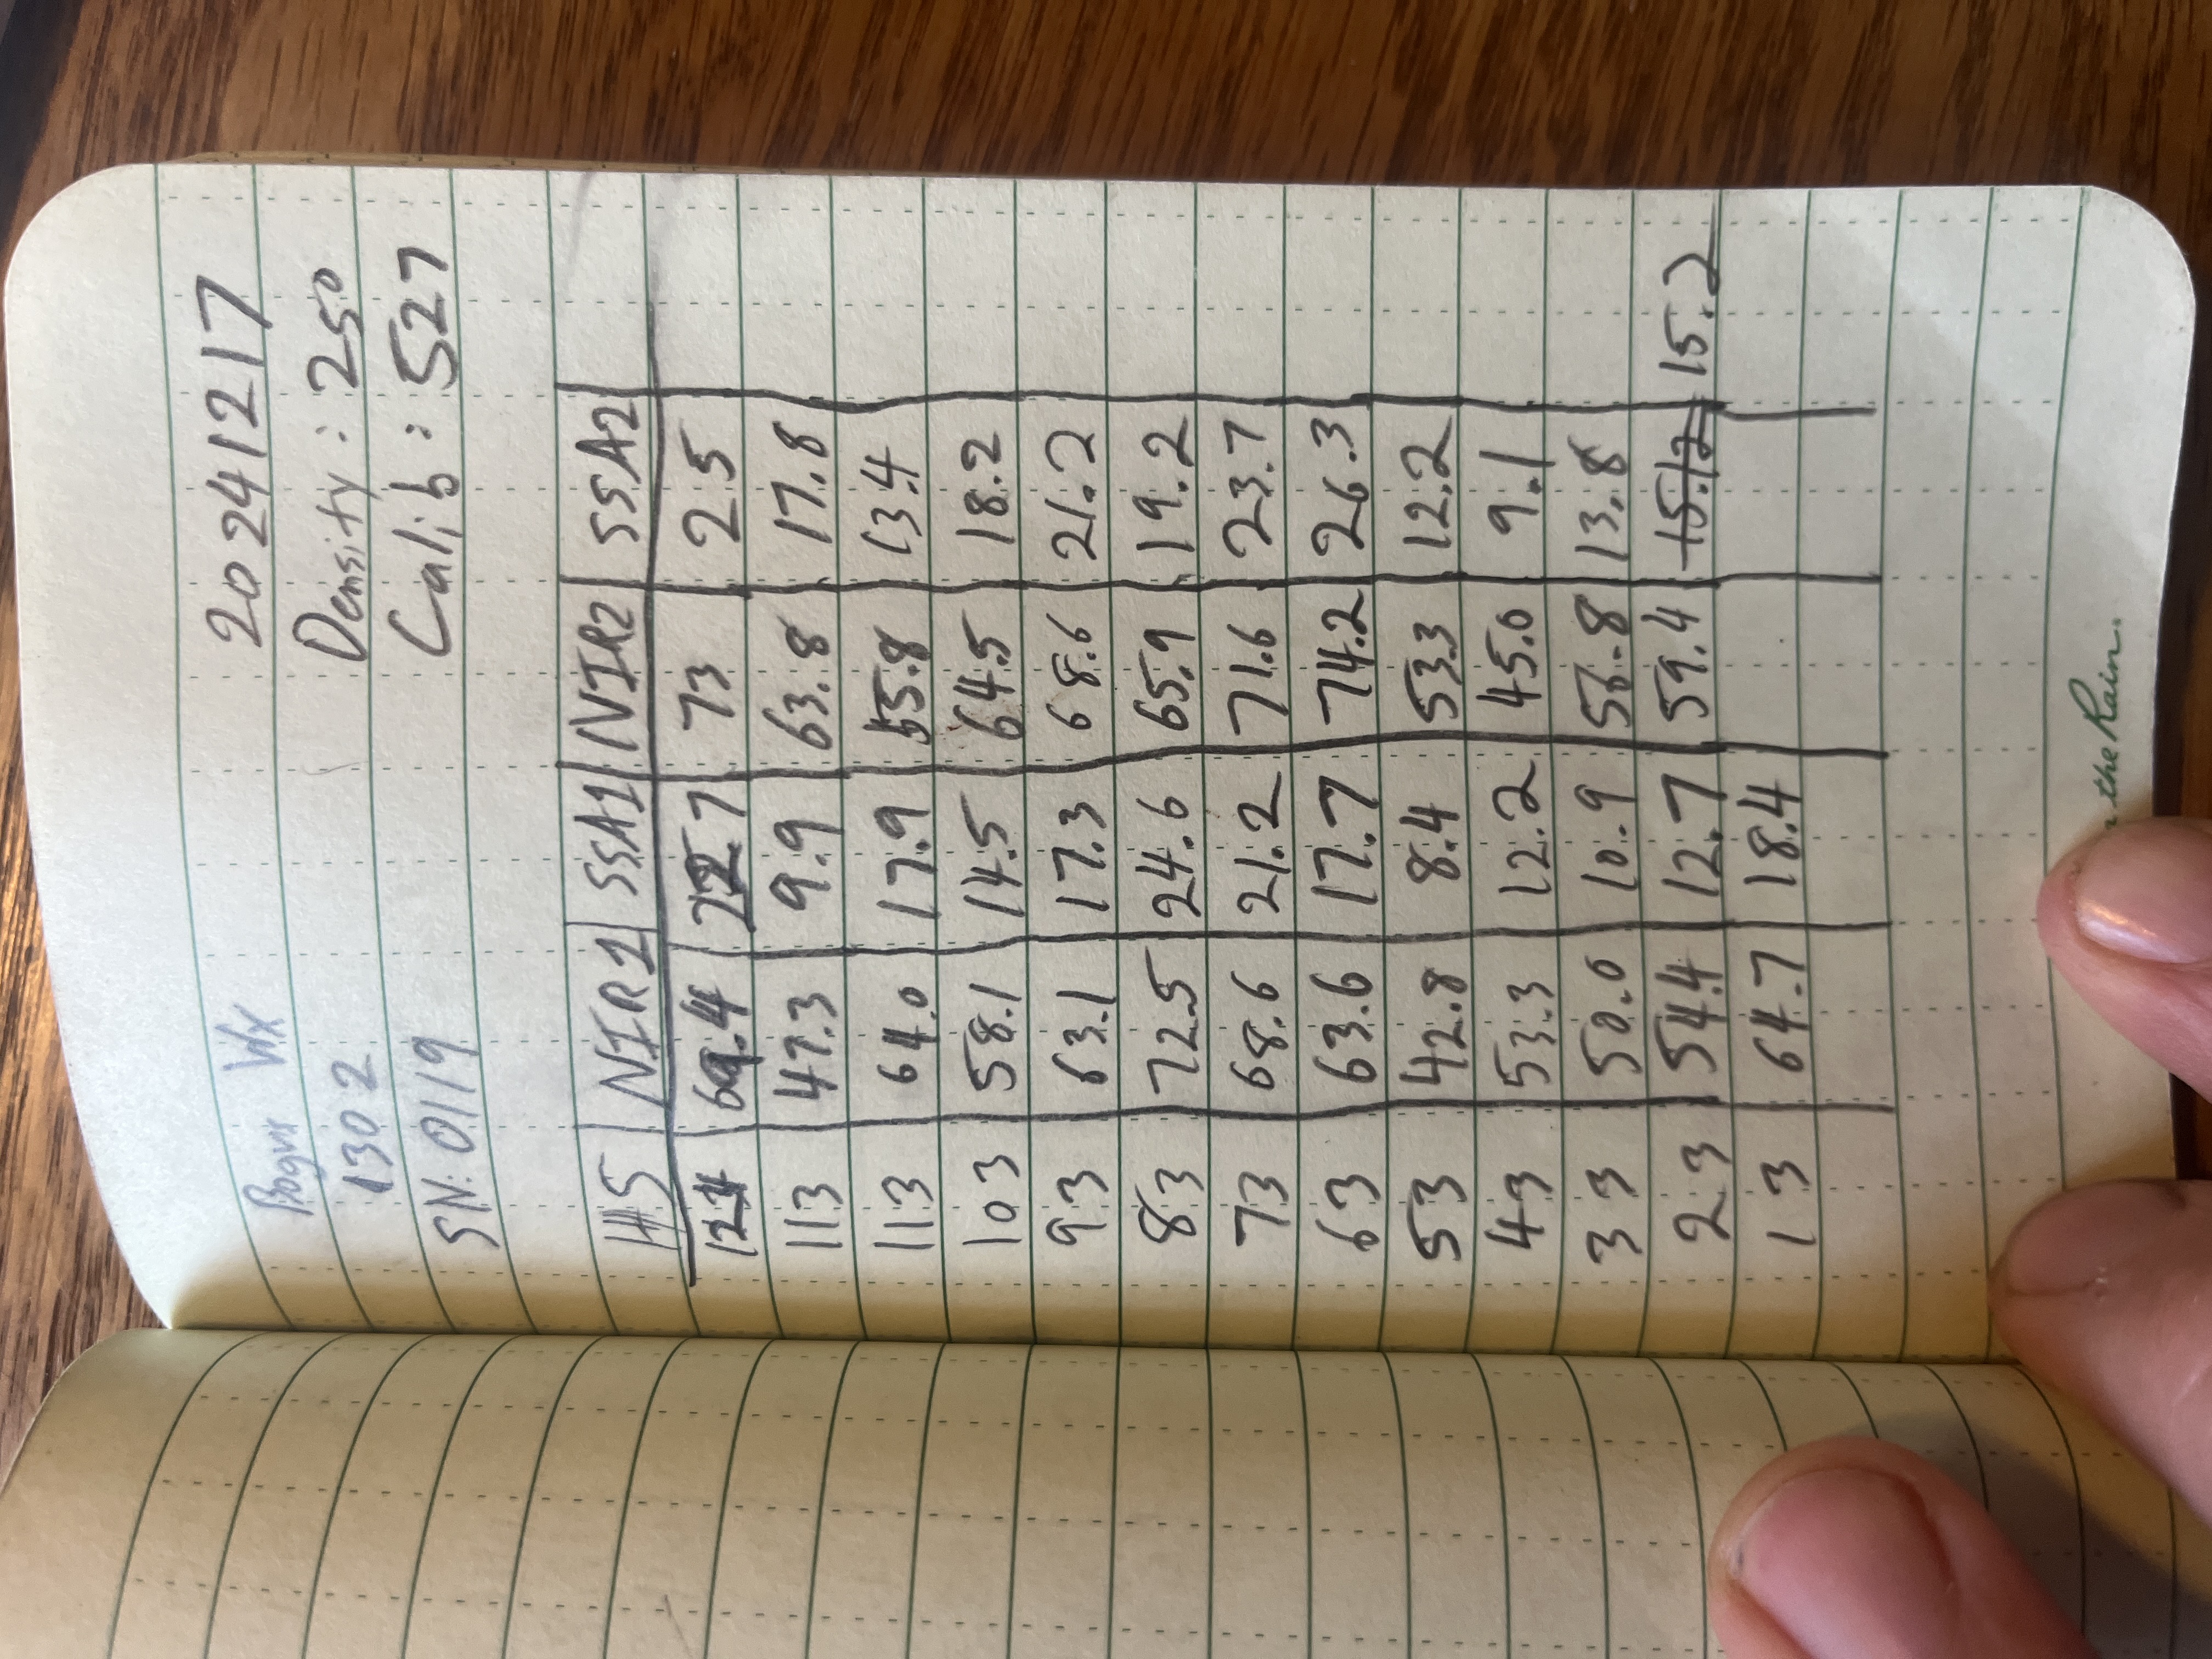 Bogus Wx 20241217
1302 Density: 250
SN: 0119 Calib: 527
HS NIR1 SSA1 NIR2 SSA2
69.4 22.7 73 25
113 47.3 9.9 63.8 17.8
113 64.0 17.9 55.8 13.4
103 58.1 14.5 64.5 18.2
93 63.1 17.3 68.6 21.2
83 72.5 24.6 65.9 19.2
73 68.6 21.2 71.6 23.7
63 63.6 17.7 74.2 26.3
53 42.8 8.4 53.3 12.2
43 53.3 12.2 45.0 9.1
33 50.0 10.9 56.8 13.8
23 54.4 12.7 59.4 15.12 15.2
13 64.7 18.4
the Rain.